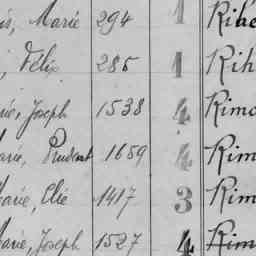 is, Marie 294 1 Rihe
, Félix 285 1 Rih
rie, Joseph 1538 4 Rimo
Marie, Prudent 1659 4 Rim
Marie, Elie 1417 3 Rim
Marie, Joseph 1527 4 Rim